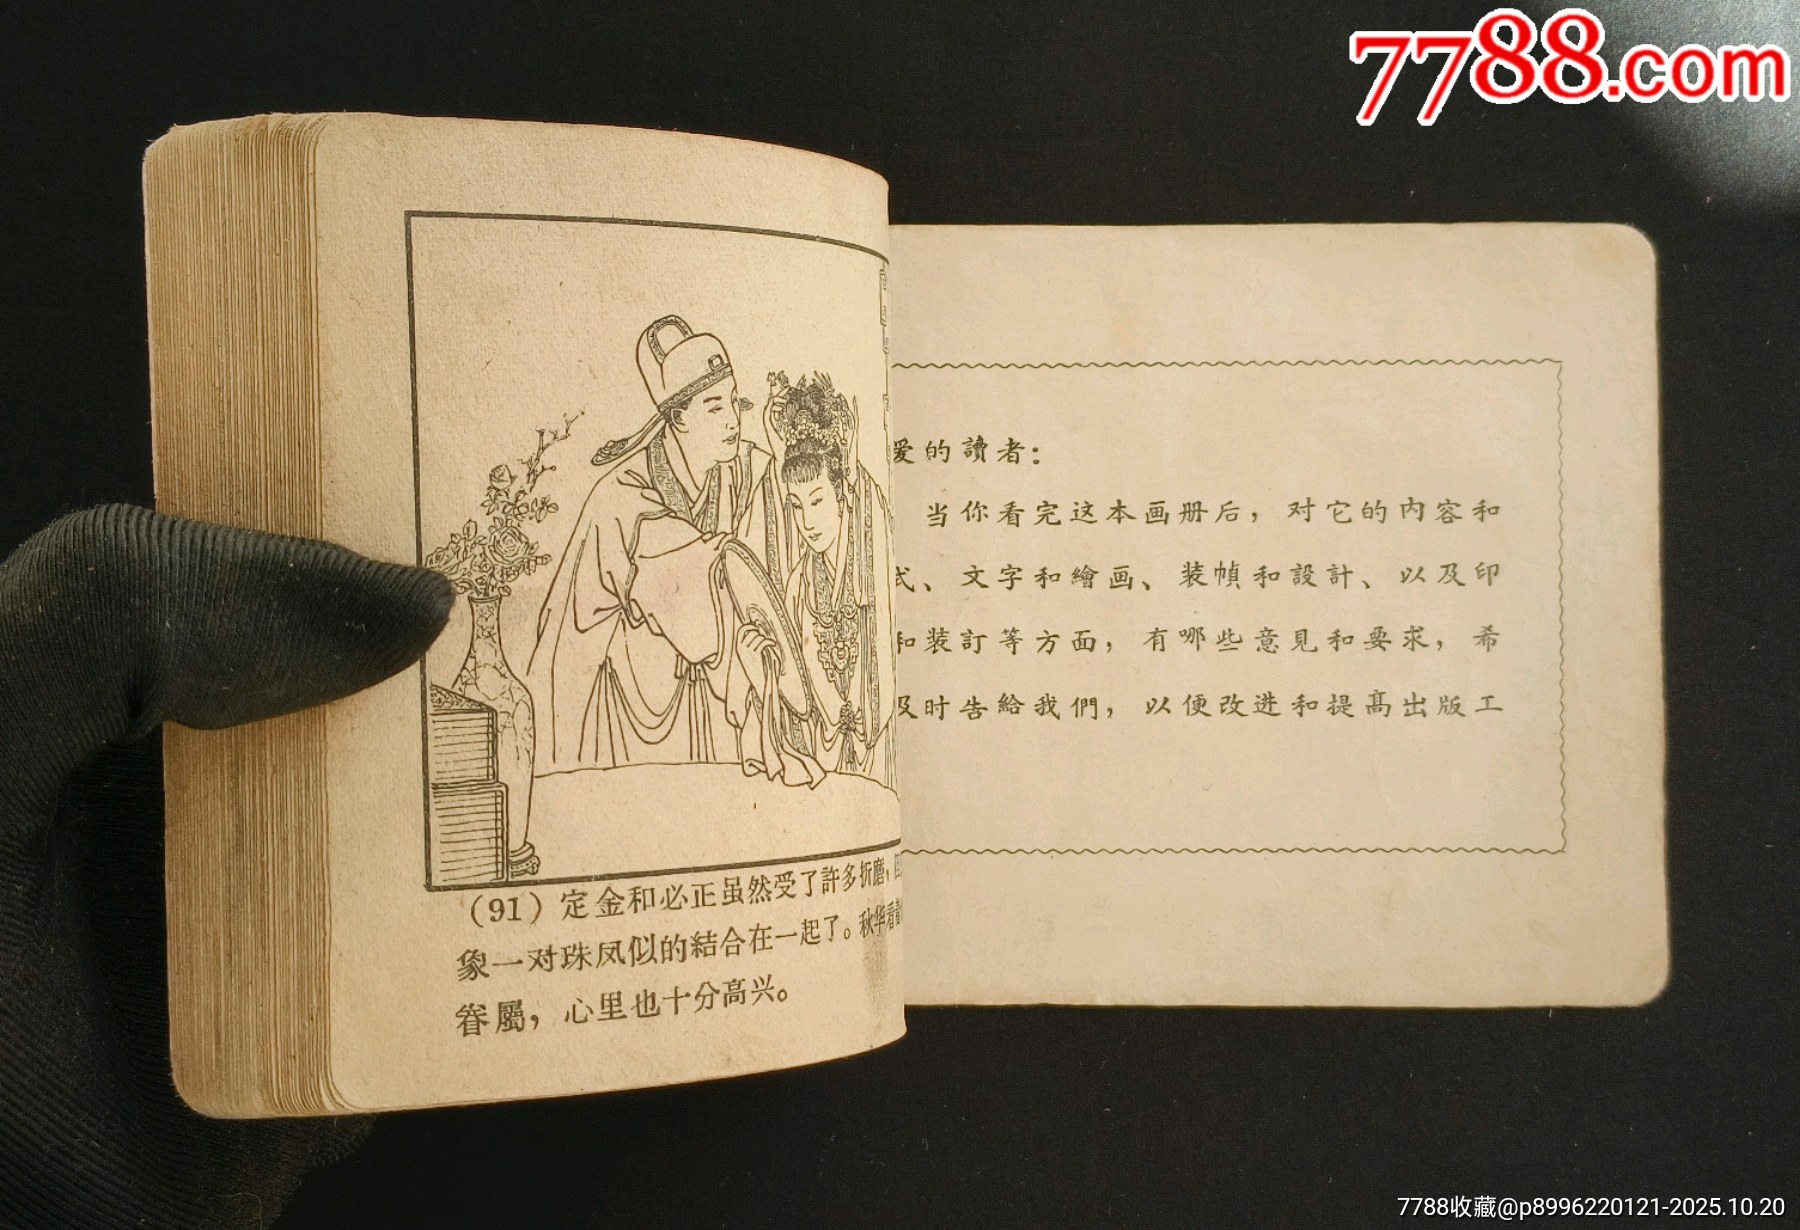 7788.com
(91)定金和必正虽然受了許多折磨,
象一对珠凤似的結合在一起了。秋华看
眷屬,心里也十分高兴。
爱的讀者:
当你看完这本画册后,对它的内容和
式、文字和繪画、装幀和設計、以及印
和装訂等方面,有哪些意見和要求,希
及时告給我們,以便改进和提高出版工
7788收藏@p8996220121-2025.10.20